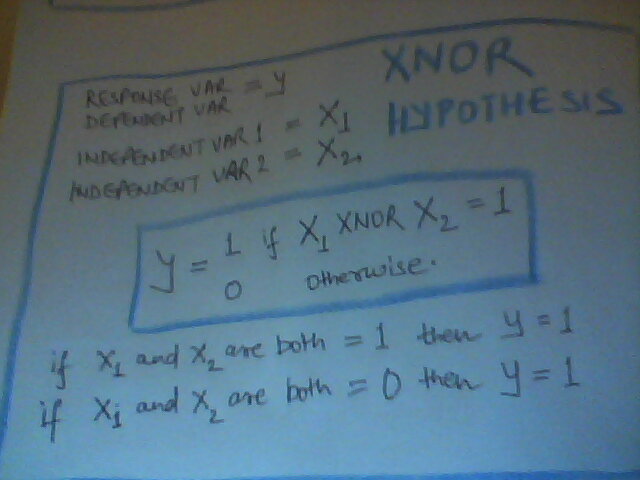 XNOR
HYPOTHESIS
RESPONSE VAR = y
DEPENDENT VAR
INDEPENDENT VAR 1 = X1
INDEPENDENT VAR 2 = X2
y = 1 if X1 XNOR X2 = 1
0 otherwise.
if X1 and X2 are both = 1 then y = 1
if X1 and X2 are both = 0 then y = 1